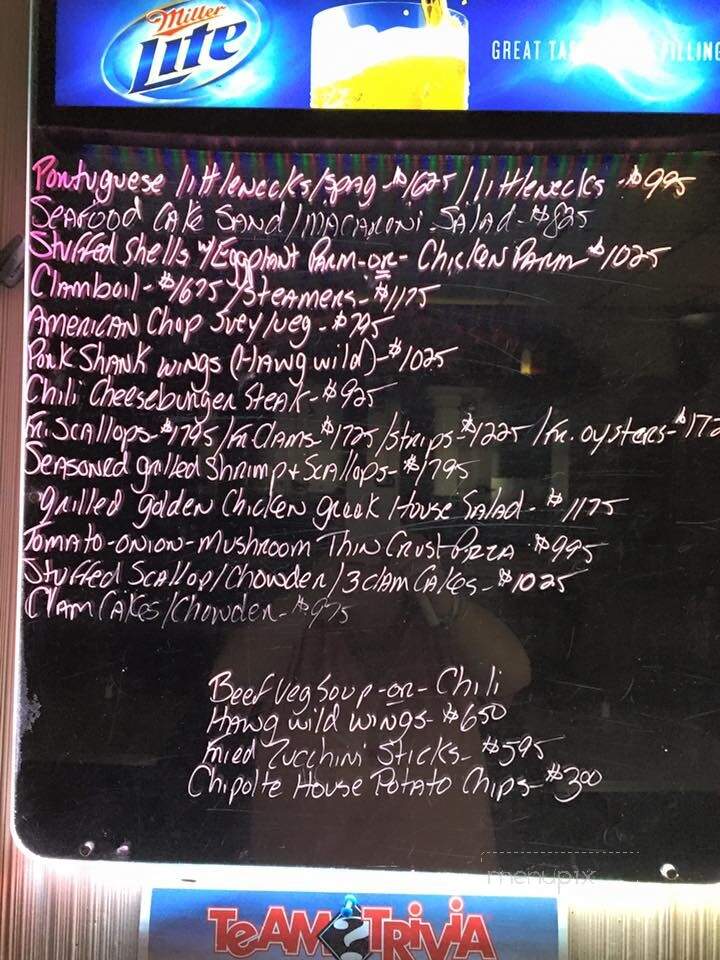 Miller
Lite
GREAT TA FILLING
Portuguese littlenecks/spag - $1625 / littlenecks - $995
Seafood Cake Sand/Macaroni Salad - $825
Stuffed Shells w/Eggplant Parm -or- Chicken Parm $1025
Clamboil - $1675 / Steamers - $1175
American Chop Suey/veg - $795
Pork Shank wings (Hawg wild) - $1025
Chili Cheeseburger Steak - $925
Fr. Scallops - $1795 / Fr. Clams - $1725 / Strips - $1225 / Fr. oysters - $172
Seasoned grilled Shrimp + Scallops - $1795
grilled golden Chicken greek House Salad - $1175
Tomato-onion-Mushroom Thin Crust Pizza - $995
Stuffed Scallop/Chowder/3 clam Cakes - $1025
Clam Cakes/Chowder - $975
Beef Veg Soup -or- Chili
Hawg wild wings - $650
Fried Zucchini Sticks - $595
Chipolte House Potato Chips - $300
menupix
TeAM TRiViA